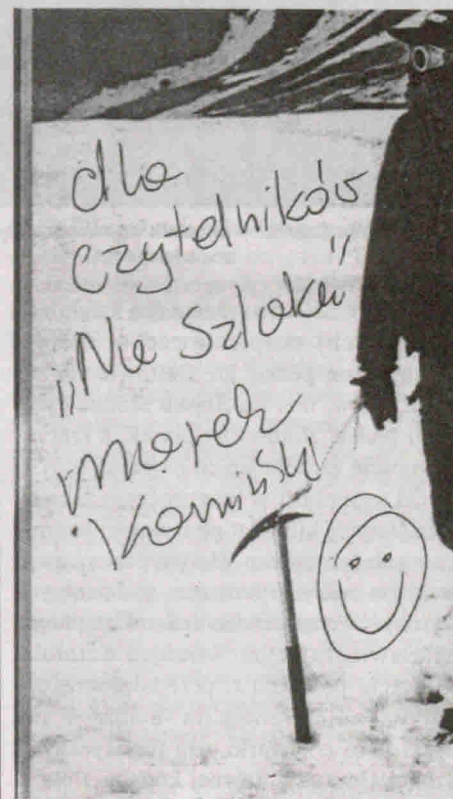 dla
Czytelników
„Na Szlaku"
Marek
Kamiński